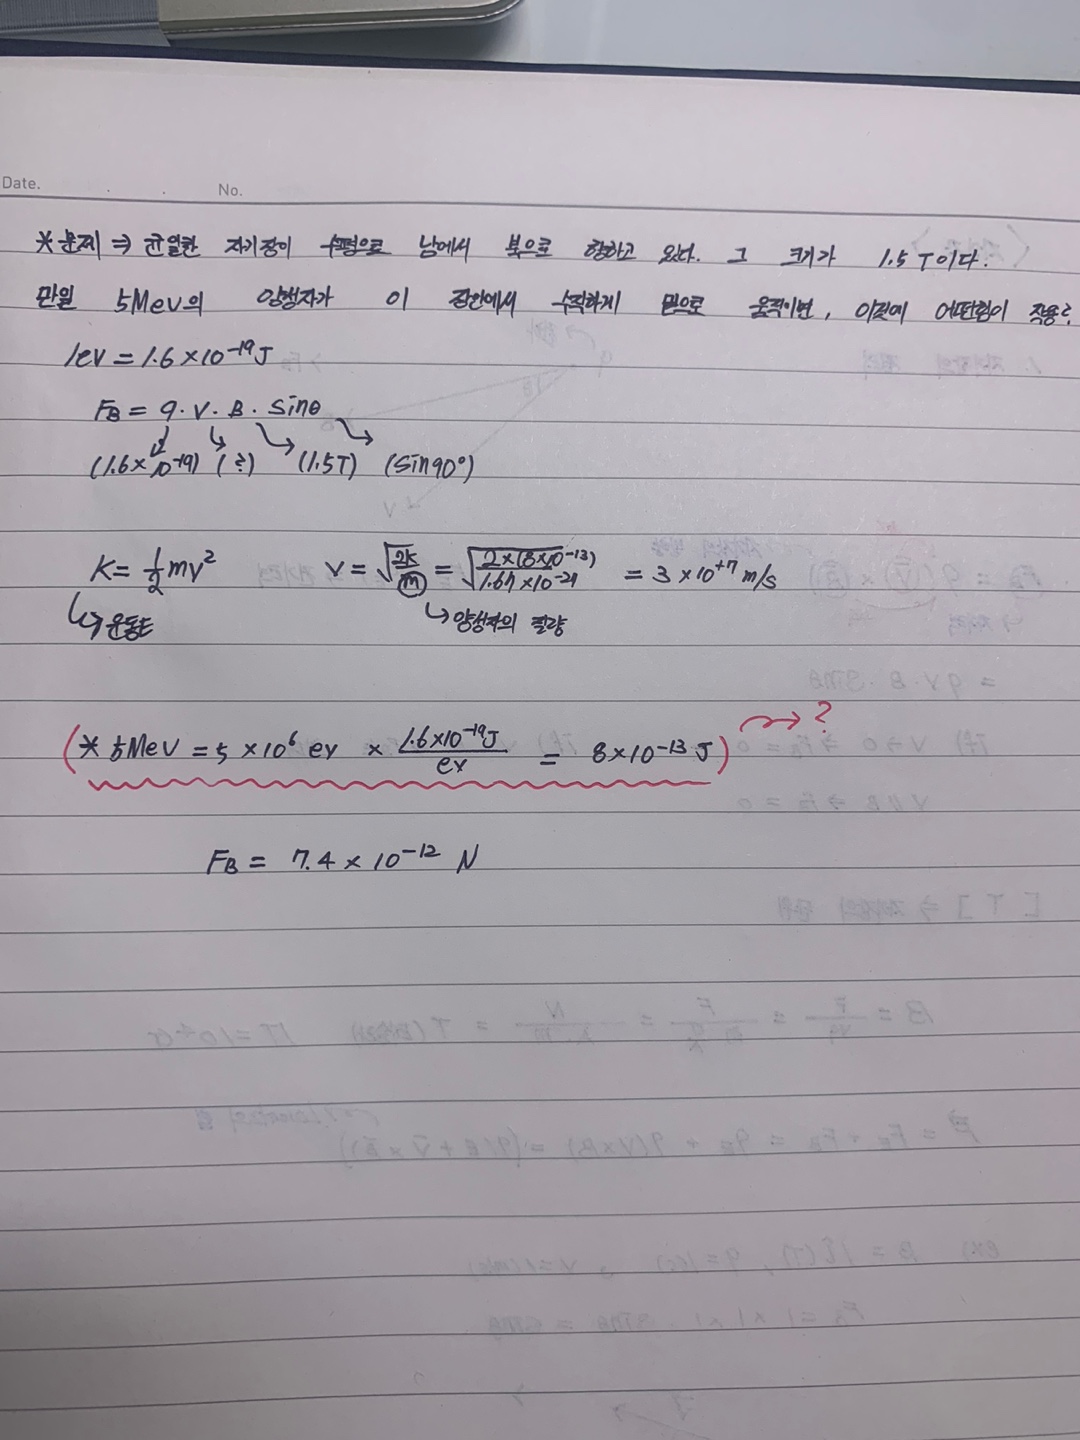 Date. . . No.
* 문제 ⇒ 균일한 자기장이 수평으로 남에서 북으로 향하고 있다. 그 크기가 1.5T이다.
만일 5MeV의 양성자가 이 장안에서 수직하게 밑으로 움직이면, 이것에 어떤힘이 작용?
1eV = 1.6×10⁻¹⁹J
F_B = q · V · B · sinθ
(1.6×10⁻¹⁹) (?) (1.5T) (sin90°)
K = ½mv² V = √(2K/m) = √(2×(8×10⁻¹³)/1.67×10⁻²⁷) = 3×10⁺⁷ m/s
↳ 운동E ↳ 양성자의 질량
(* 5MeV = 5×10⁶ ev × 1.6×10⁻¹⁹J/ev = 8×10⁻¹³ J) → ?
F_B = 7.4 × 10⁻¹² N